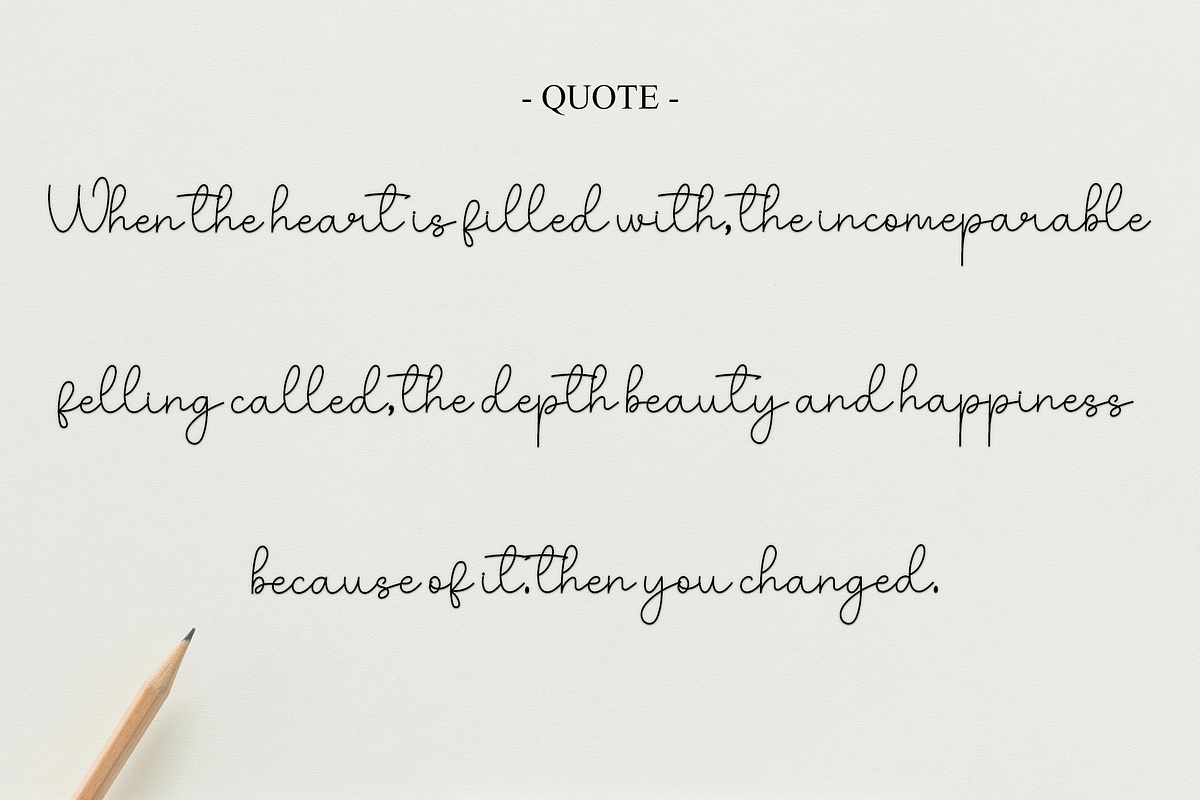 - QUOTE -
When the heart is filled with, the incomeparable
felling called, the depth beauty and happiness
because of it. then you changed.